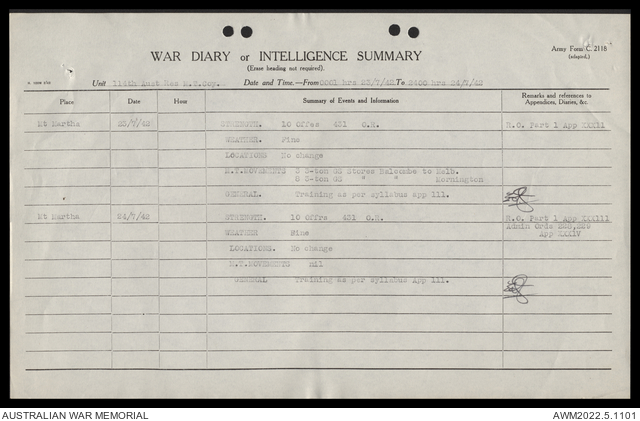 Army Form C. 2118
(adapted.)
WAR DIARY or INTELLIGENCE SUMMARY
(Erase heading not required).
Unit 114th Aust Res M.T.Coy. Date and Time.—From 0001 hrs 23/7/42 To 2400 hrs 24/7/42
Place Date Hour Summary of Events and Information Remarks and references to
Appendices, Diaries, &c.
Mt Martha 23/7/42 STRENGTH. 10 Offrs 431 O.R. R.O. Part 1 App XXXII
WEATHER. Fine
LOCATIONS No change
M.T.MOVEMENTS 3-ton GS Stores Balcombe to Melb.
3-ton GS " " Mornington
GENERAL. Training as per syllabus app 111.
Mt Martha 24/7/42 STRENGTH. 10 Offrs 431 O.R. R.O. Part 1 App XXXIII
WEATHER Fine Admin Ords 228,229
App XXXIV
LOCATIONS. No change
M.T.MOVEMENTS nil
GENERAL Training as per syllabus App 111.
AUSTRALIAN WAR MEMORIAL AWM2022.5.1101